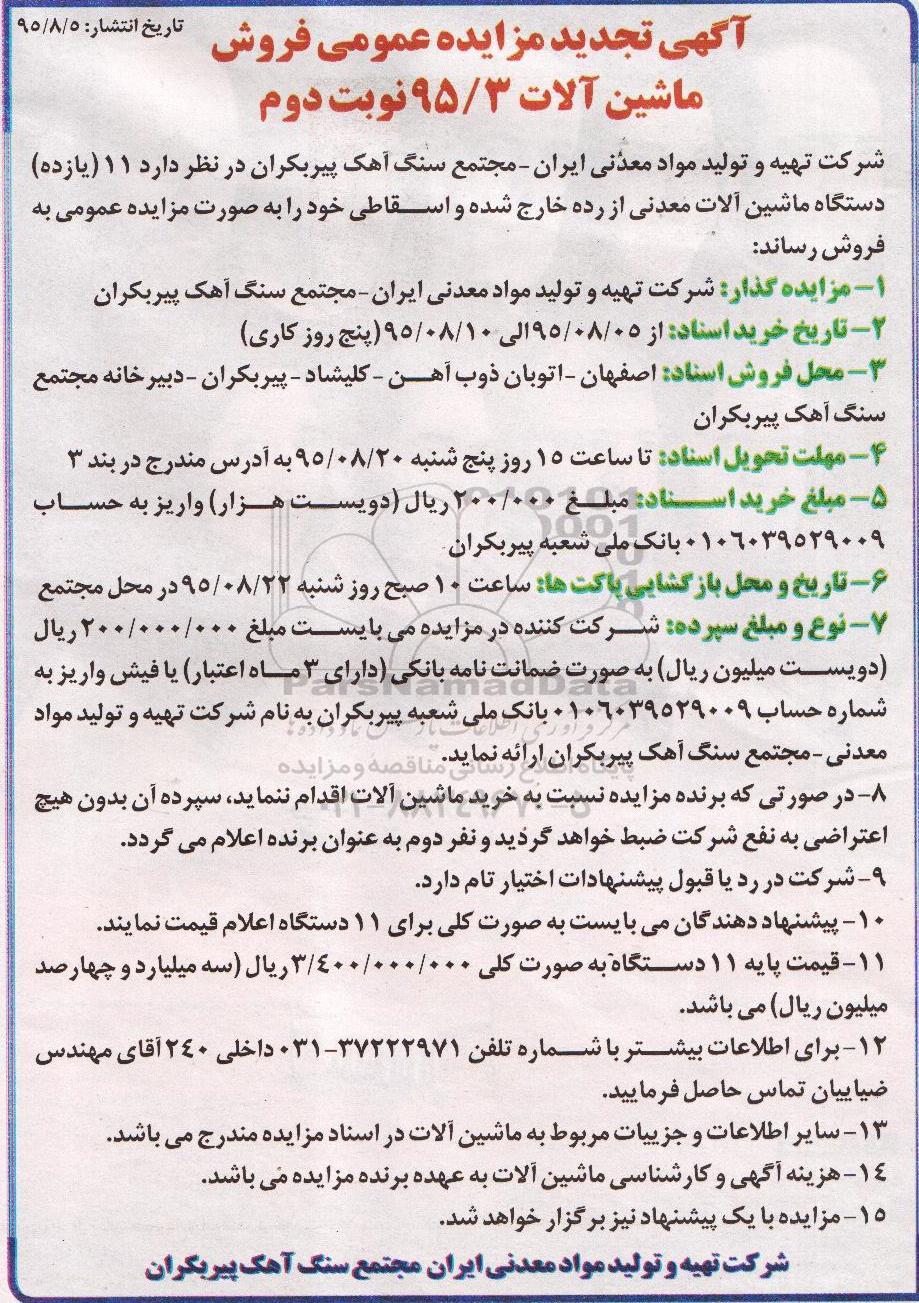 تاریخ انتشار: ۹۵/۸/۵
آگهی تجدید مزایده عمومی فروش
ماشین آلات ۹۵/۳ نوبت دوم
شرکت تهیه و تولید مواد معدنی ایران -مجتمع سنگ آهک پیربکران در نظر دارد ۱۱ (یازده)
دستگاه ماشین آلات معدنی از رده خارج شده و اسقاطی خود را به صورت مزایده عمومی به
فروش رساند:
۱- مزایده گذار: شرکت تهیه و تولید مواد معدنی ایران-مجتمع سنگ آهک پیربکران
۲- تاریخ خرید اسناد: از ۹۵/۰۸/۰۵ الی ۹۵/۰۸/۱۰ (پنج روز کاری)
۳- محل فروش اسناد: اصفهان -اتوبان ذوب آهن -کلیشاد -پیربکران -دبیرخانه مجتمع
سنگ آهک پیربکران
۴- مهلت تحویل اسناد: تا ساعت ۱۵ روز پنج شنبه ۹۵/۰۸/۲۰ به آدرس مندرج در بند ۳
۵- مبلغ خرید اسناد: مبلغ ۲۰۰/۰۰۰ ریال (دویست هزار) واریز به حساب
۰۱۰۶۰۳۹۵۲۹۰۰۹ بانک ملی شعبه پیربکران
۶- تاریخ و محل بازگشایی پاکت ها: ساعت ۱۰ صبح روز شنبه ۹۵/۰۸/۲۲ در محل مجتمع
۷- نوع و مبلغ سپرده: شرکت کننده در مزایده می بایست مبلغ ۲۰۰/۰۰۰/۰۰۰ ریال
(دویست میلیون ریال) به صورت ضمانت نامه بانکی (دارای ۳ ماه اعتبار) یا فیش واریز به
ParsNamadData
شماره حساب ۰۱۰۶۰۳۹۵۲۹۰۰۹ بانک ملی شعبه پیربکران به نام شرکت تهیه و تولید مواد
معدنی -مجتمع سنگ آهک پیربکران ارائه نماید.
پایگاه اطلاع رسانی مناقصه و مزایده
۸- در صورتی که برنده مزایده نسبت به خرید ماشین آلات اقدام ننماید، سپرده آن بدون هیچ
اعتراضی به نفع شرکت ضبط خواهد گردید و نفر دوم به عنوان برنده اعلام می گردد.
۹-شرکت در رد یا قبول پیشنهادات اختیار تام دارد.
۱۰- پیشنهاد دهندگان می بایست به صورت کلی برای ۱۱ دستگاه اعلام قیمت نمایند.
۱۱- قیمت پایه ۱۱ دستگاه به صورت کلی ۳/۴۰۰/۰۰۰/۰۰۰ ریال (سه میلیارد و چهارصد
میلیون ریال) می باشد.
۱۲- برای اطلاعات بیشتر با شماره تلفن ۳۷۲۲۲۹۷۱-۰۳۱ داخلی ۲۴۰ آقای مهندس
ضیاییان تماس حاصل فرمایید.
۱۳- سایر اطلاعات و جزییات مربوط به ماشین آلات در اسناد مزایده مندرج می باشد.
۱۴- هزینه آگهی و کارشناسی ماشین آلات به عهده برنده مزایده می باشد.
۱۵- مزایده با یک پیشنهاد نیز برگزار خواهد شد.
شرکت تهیه و تولید مواد معدنی ایران مجتمع سنگ آهک پیربکران